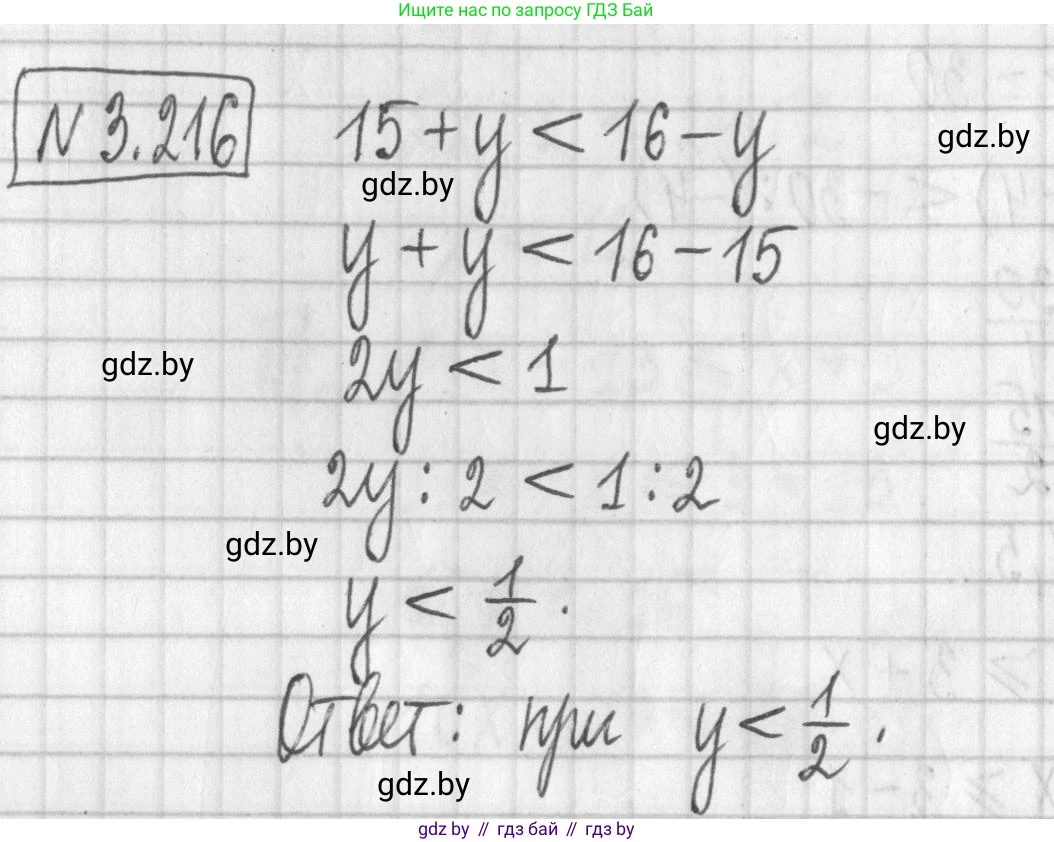 Ищите нас по запросу ГДЗ Бай
N 3.216
15 + y < 16 - y
gdz.by
gdz.by
y + y < 16 - 15
gdz.by
2y < 1
gdz.by
2y : 2 < 1 : 2
gdz.by
y < 1/2 .
Ответ: при y < 1/2 .
gdz.by
gdz by // гдз бай // гдз by